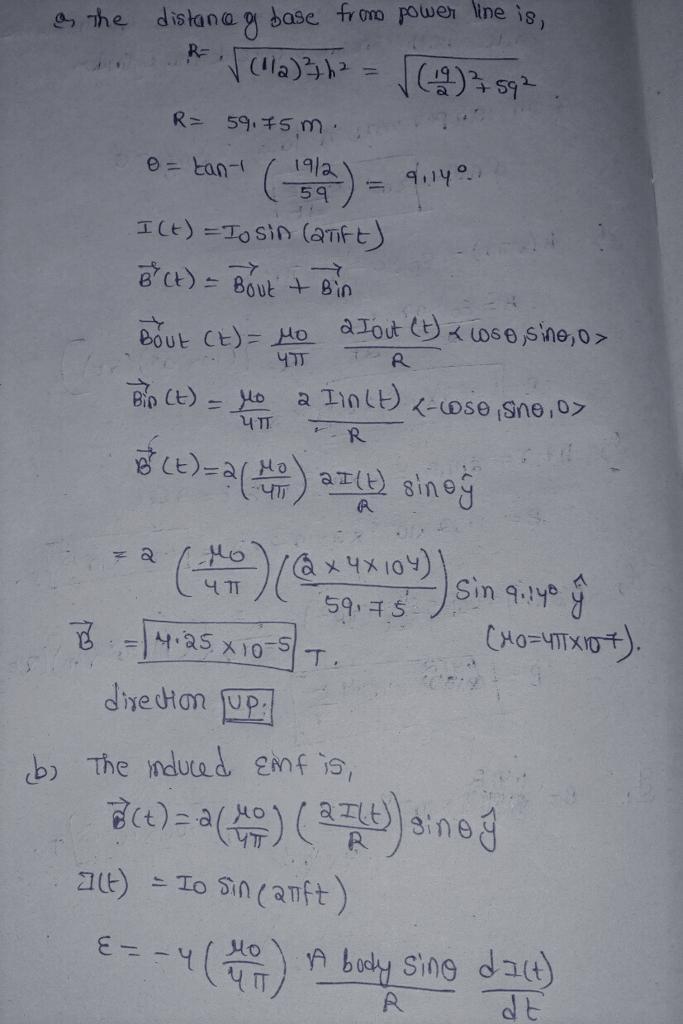 a, The distance of base from power line is,
R = √((1/2)²+h²) = √((19/2)²+59²)
R = 59.75 m.
θ = tan-1 ((19/2)/59) = 9.14°
I(t) = Io sin (2πft)
B⃗(t) = B⃗out + B⃗in
B⃗out (t) = μo/4π 2Iout(t)/R <cosθ, sinθ, 0>
B⃗in (t) = μo/4π 2 Iin(t)/R <-cosθ, sinθ, 0>
B⃗(t) = 2(μo/4π) 2I(t)/R sinθ ŷ
= 2 (μo/4π) ((2×4×10⁴)/59.75) Sin 9.14° ŷ
B⃗ = 4.25 × 10⁻⁵ T. (μo=4π×10⁻⁷).
direction UP.
b) The induced Emf is,
B⃗(t) = 2(μo/4π) (2I(t)/R) sinθ ŷ
I(t) = Io Sin(2πft)
ε = -4(μo/4π) A body Sinθ/R dI(t)/dt